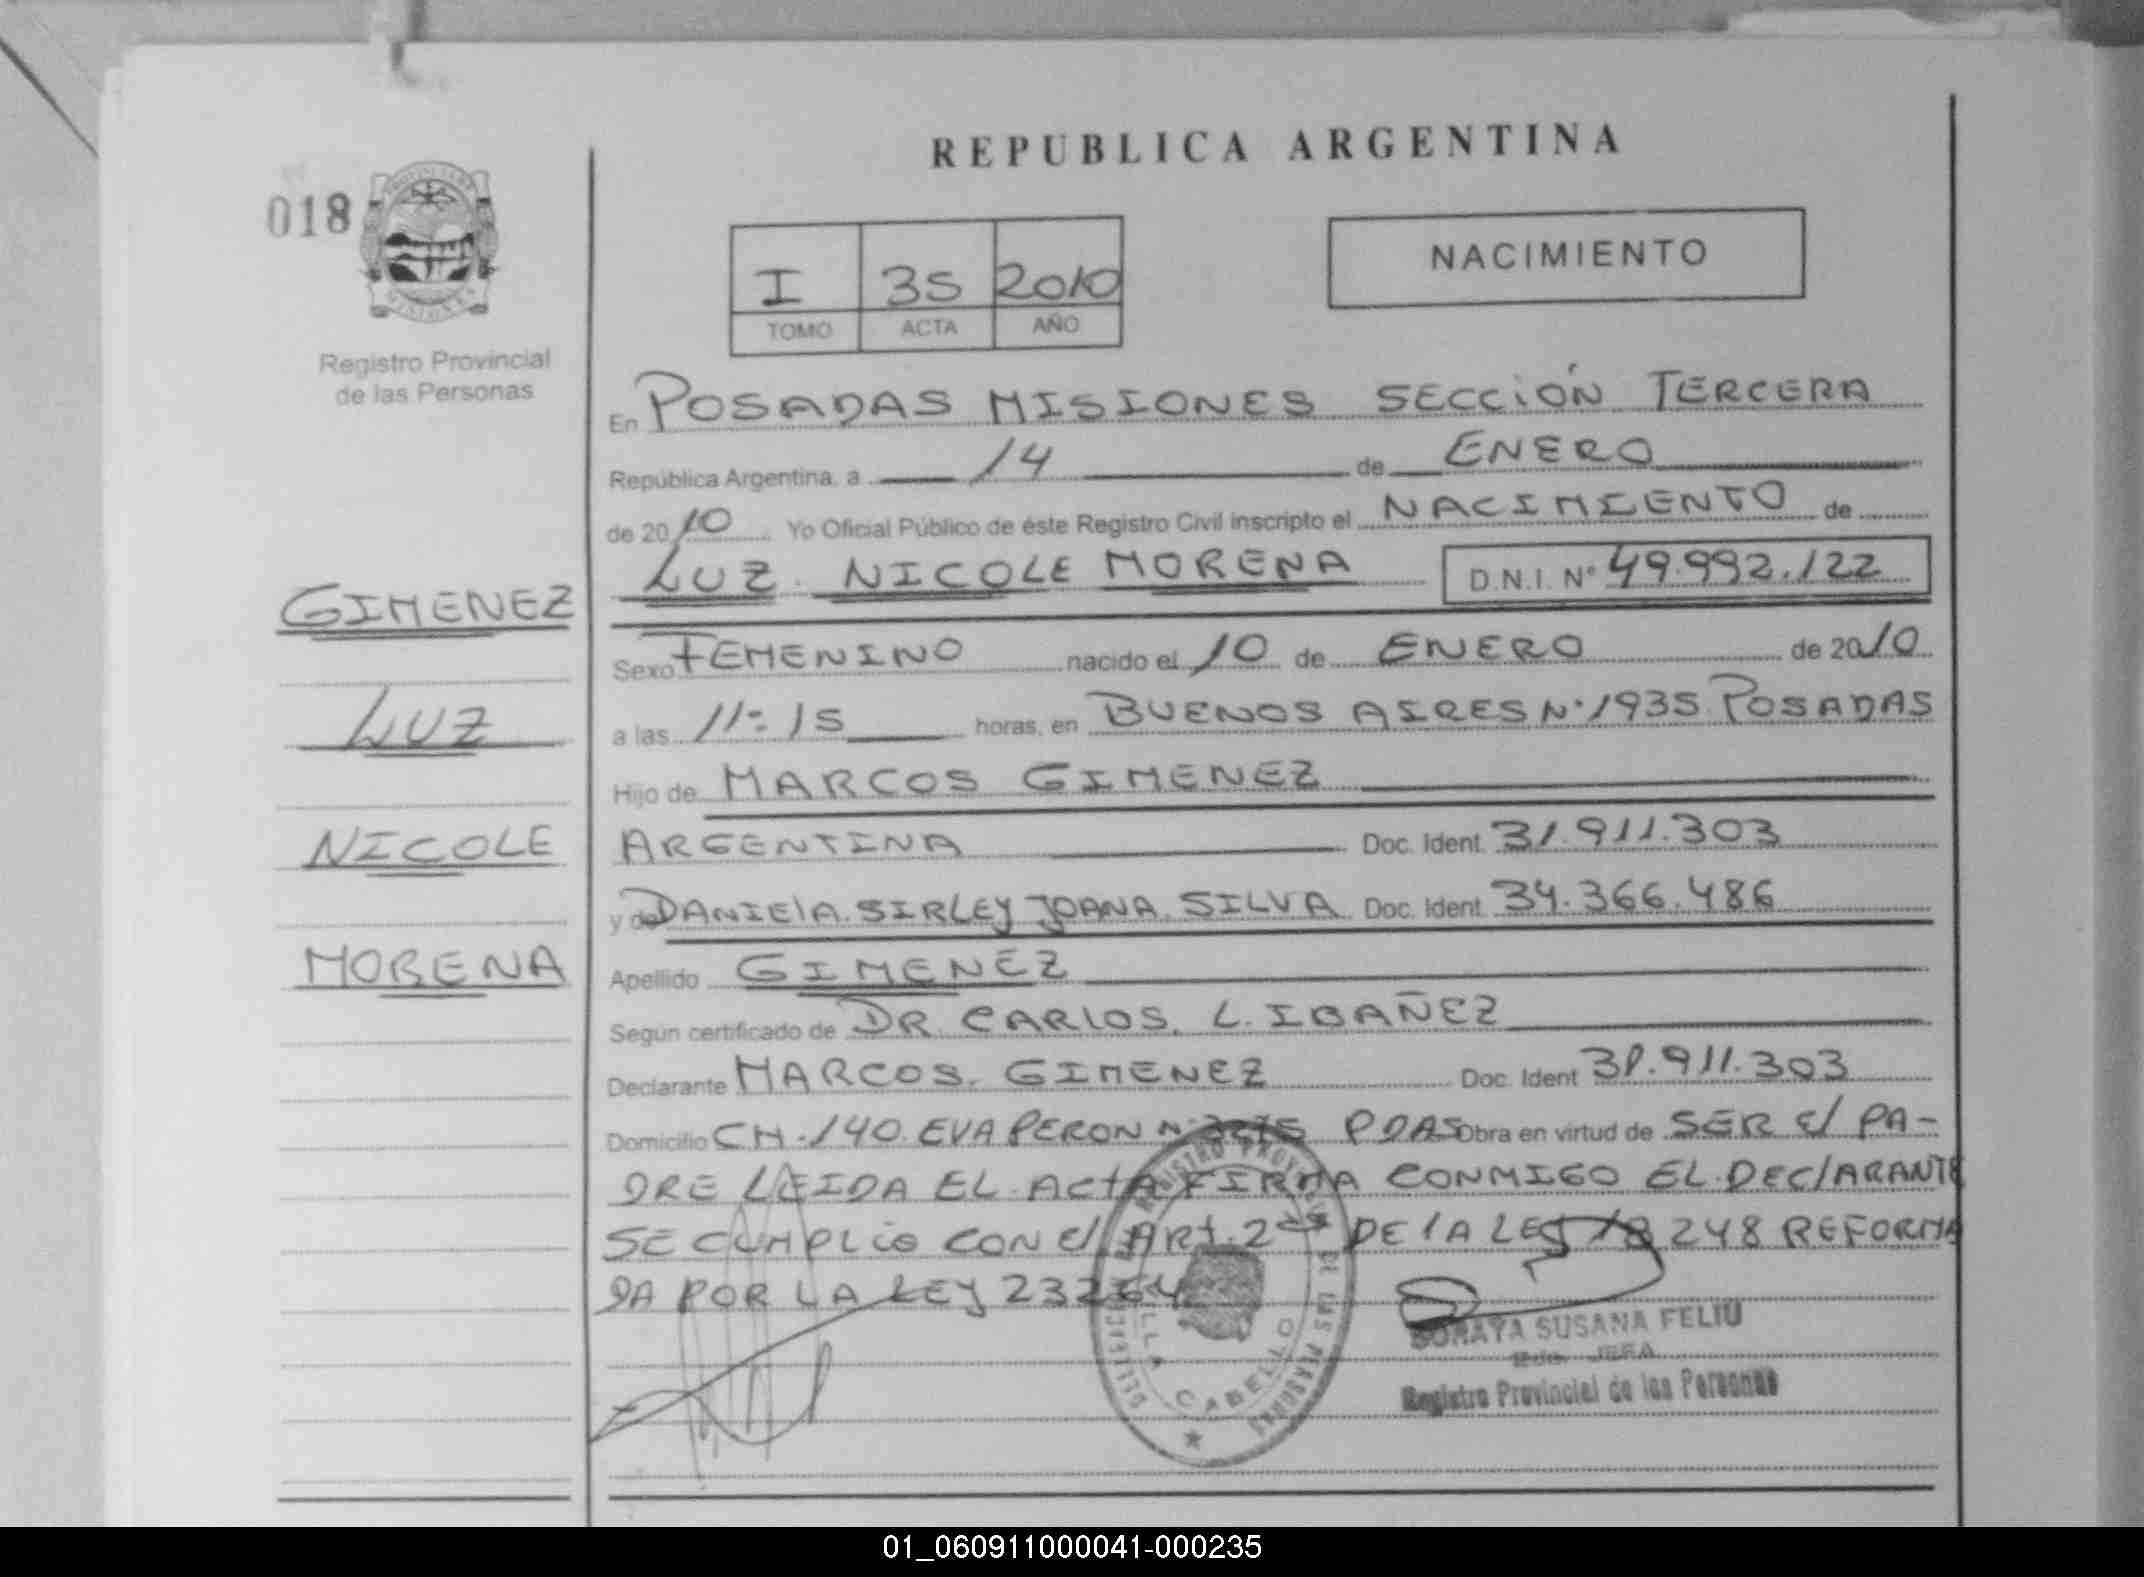 REPUBLICA ARGENTINA
018
I 35 2010
TOMO ACTA AÑO
NACIMIENTO
Registro Provincial
de las Personas
En POSADAS MISIONES SECCIÓN TERCERA
República Argentina, a 14 de ENERO
de 2010 Yo Oficial Público de éste Registro Civil inscripto el NACIMIENTO de
LUZ NICOLE MORENA D.N.I. Nº 49.992.122
GIMENEZ
Sexo FEMENINO nacido el 10 de ENERO de 2010
LUZ
a las 11:15 horas, en BUENOS AIRES Nº 1935 POSADAS
Hijo de MARCOS GIMENEZ
NICOLE
ARGENTINA Doc. Ident. 31.911.303
y de DANIElA SIRLEY JOANA SILVA Doc. Ident. 34.366.486
MORENA
Apellido GIMENEZ
Según certificado de DR. CARLOS. L. IBAÑEZ
Declarante MARCOS GIMENEZ Doc. Ident 31.911.303
Domicilio CH. 140 EVA PERON Nº PDAS Obra en virtud de SER El PA-
DRE LEIDA EL ACtA FIRMA CONMIGO EL DEClARANTE
SE CUMPLIO CON El ARt. 2 DE lA LEY 18248 REFORMA
DA POR LA LEY 23264
REGISTRO PROVINCIAL DE LAS PERSONAS
CABELLO
SORAYA SUSANA FELIU
JEFA
Registro Provincial de las Personas
01_060911000041-000235